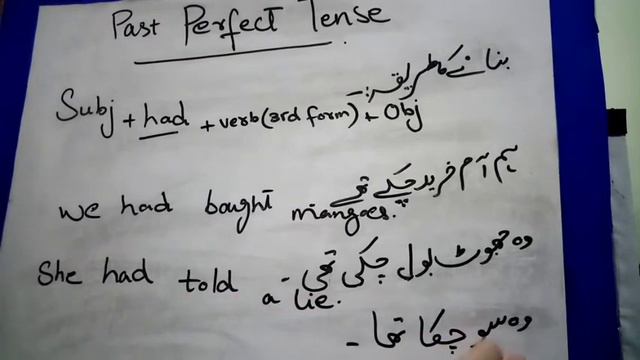 Past Perfect Tense
بنانے کا طریقہ:-
Subj + had + verb (3rd form) + Obj
ہم آم خرید چکے تھے
we had bought mangoes.
وہ جھوٹ بول چکی تھی -
She had told a lie.
وہ سو چکا تھا -